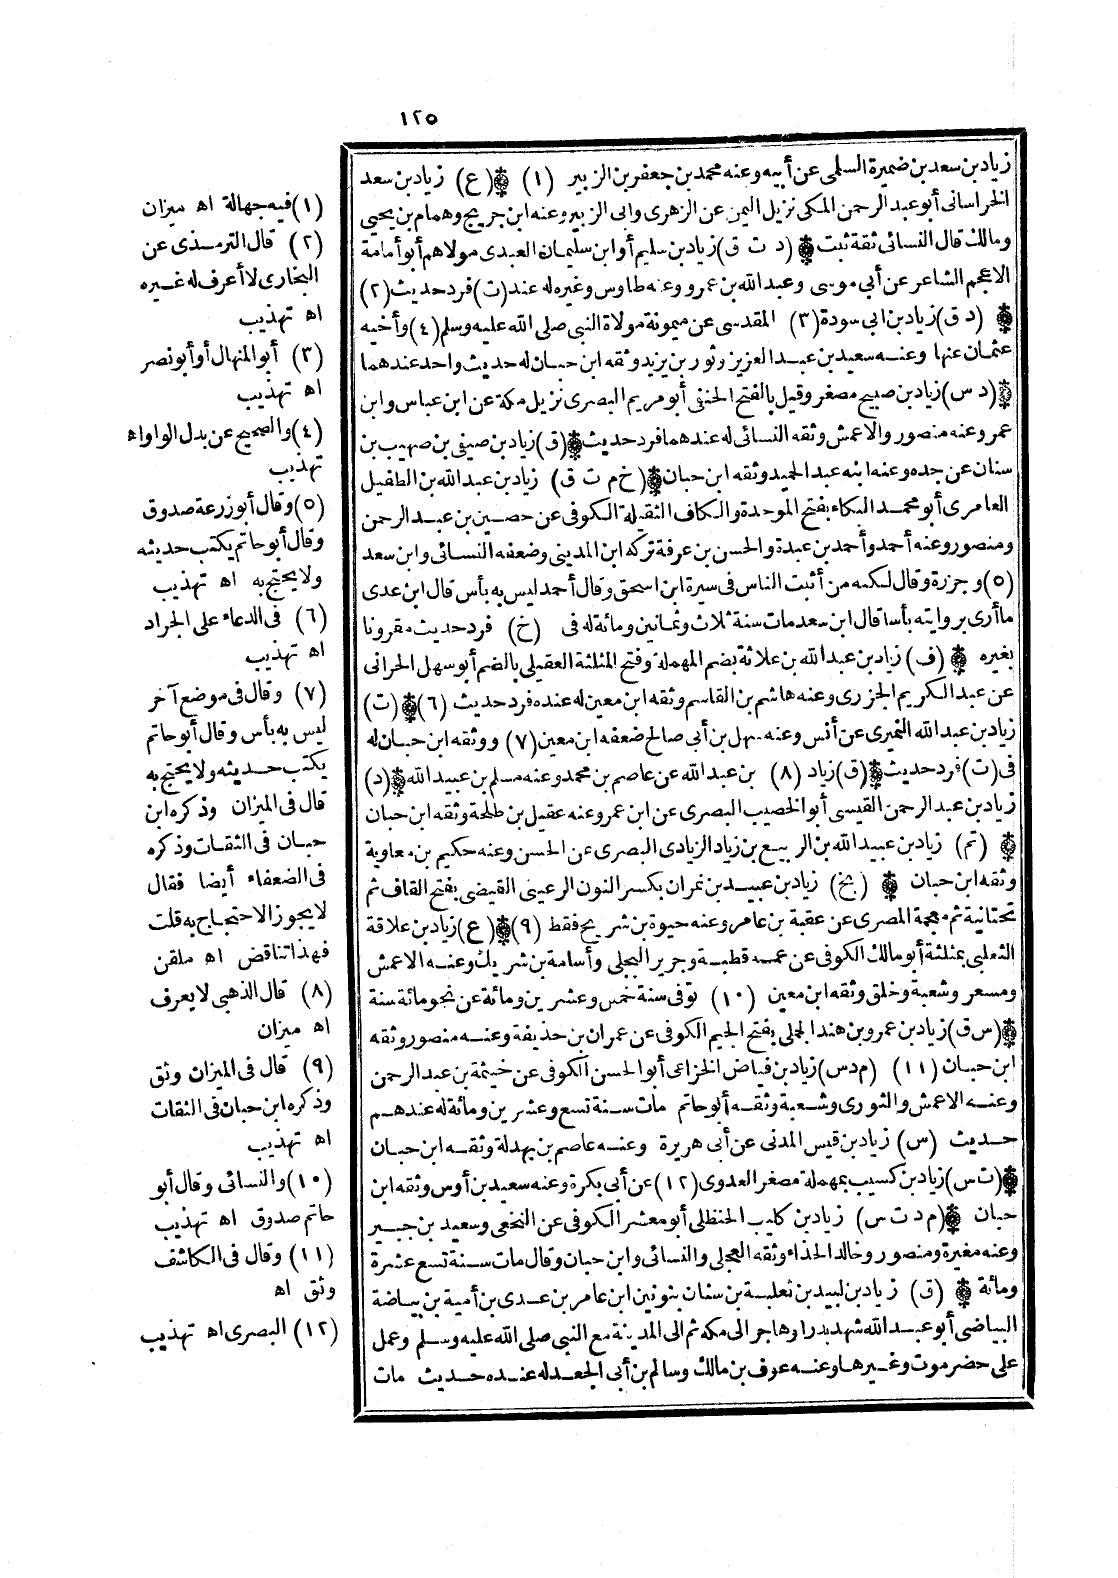 ١٢٥
زياد بن سعد بن ضميرة السلمى عن أبيه وعنه محمد بن جعفر بن الزبير (١) ۞ (ع) زياد بن سعد
الخراسانى أبو عبد الرحمن المكى نزيل اليمن عن الزهرى وابى الزبير وعنه ابن جريج وهمام بن يحيى
ومالك قال النسائى ثقة ثبت ۞ (د ت ق) زياد بن سليم أو ابن سليمان العبدى مولاهم أبو أمامة
الاعجم الشاعر عن أبى موسى وعبد الله بن عمرو وعنه طاوس وغيره له عند (ت) فرد حديث (٢)
۞ (د ق) زياد بن ابى سودة (٣) المقدسى عن ميمونة مولاة النبى صلى الله عليه وسلم (٤) وأخيه
عثمان عنها وعنه سعيد بن عبد العزيز وثور بن يزيد وثقه ابن حبان له حديث واحد عندهما
۞ (د س) زياد بن صبيح مصغر وقيل بالفتح الحنفى أبو مريم البصرى نزيل مكة عن ابن عباس وابن
عمر وعنه منصور والاعمش وثقه النسائى له عندهما فرد حديث ۞ (ق) زياد بن صيفى بن صهيب بن
سنان عن جده وعنه ابنه عبد الحميد وثقه ابن حبان ۞ (خ م ت ق) زياد بن عبد الله بن الطفيل
العامرى أبو محمد البكاء بفتح الموحدة والكاف الثقيلة الكوفى عن حصين بن عبد الرحمن
ومنصور وعنه أحمد وأحمد بن عبدة والحسن بن عرفة تركه ابن المدينى وضعفه النسائى وابن سعد
(٥) و جزرة وقال لكنه من أثبت الناس فى سيرة ابن اسحق وقال أحمد ليس به بأس قال ابن عدى
ما أرى بروايته بأسا قال ابن سعد مات سنة ثلاث وثمانين ومائة له فى (خ) فرد حديث مقرونا
بغيره ۞ (ف) زياد بن عبد الله بن علاثة بضم المهملة وفتح المثلثة العقيلى بالضم أبو سهل الحرانى
عن عبد الكريم الجزرى وعنه هاشم بن القاسم وثقه ابن معين له عنده فرد حديث (٦) ۞ (ت)
زياد بن عبد الله النميرى عن أنس وعنه سهل بن أبى صالح ضعفه ابن معين (٧) ووثقه ابن حبان له
فى (ت) فرد حديث ۞ (ق) زياد (٨) بن عبد الله عن عاصم بن محمد وعنه مسلم بن عبيد الله ۞ (د)
زياد بن عبد الرحمن القيسى أبو الخصيب البصرى عن ابن عمر وعنه عقيل بن طلحة وثقه ابن حبان
۞ (تم) زياد بن عبيد الله بن الربيع بن زياد الزيادى البصرى عن الحسن وعنه حكيم بن معاوية
وثقه ابن حبان ۞ (بخ) زياد بن عبيد بن نمران بكسر النون الرعينى القيضى بفتح القاف ثم
تحتانية ثم معجمة المصرى عن عقبة بن عامر وعنه حيوة بن شريح فقط (٩) ۞ (ع) زياد بن علاقة
الثعلبى بمثلثة أبو مالك الكوفى عن عمه قطبة وجرير البجلى وأسامة بن شريك وعنه الاعمش
ومسعر وشعبة وخلق وثقه ابن معين (١٠) توفى سنة خمس وعشرين ومائة عن نحو مائة سنة
۞ (س ق) زياد بن عمرو بن هند الجملى بفتح الجيم الكوفى عن عمران بن حذيفة وعنه منصور وثقه
ابن حبان (١١) (م د س) زياد بن فياض الخزاعى أبو الحسن الكوفى عن خيثمة بن عبد الرحمن
وعنه الاعمش والثورى وشعبة وثقه أبو حاتم مات سنة تسع وعشرين ومائة له عندهم
حديث (س) زياد بن قيس المدنى عن أبى هريرة وعنه عاصم بن بهدلة وثقه ابن حبان
۞ (ت س) زياد بن كسيب بمهملة مصغر العدوى (١٢) عن أبى بكرة وعنه سعيد بن أوس وثقه ابن
حبان ۞ (م د ت س) زياد بن كليب الحنظلى أبو معشر الكوفى عن النخعى وسعيد بن جبير
وعنه مغيرة ومنصور وخالد الحذاء وثقه العجلى والنسائى وابن حبان وقال مات سنة تسع عشرة
ومائة ۞ (ق) زياد بن لبيد بن ثعلبة بن سنان بنونين ابن عامر بن عدى بن أمية بن بياضة
البياضى أبو عبد الله شهد بدرا وهاجر الى مكة ثم الى المدينة مع النبى صلى الله عليه وسلم وعمل
على حضرموت وغيرها وعنه عوف بن مالك وسالم بن أبى الجعد له عنده حديث مات
(١) فيه جهالة اه ميزان
(٢) قال الترمذى عن
البخارى لا أعرف له غيره
اه تهذيب
(٣) أبو المنهال أو أبو نصر
اه تهذيب
(٤) والصحيح عن بدل الواو اه
تهذيب
(٥) وقال أبو زرعة صدوق
وقال أبو حاتم يكتب حديثه
ولا يحتج به اه تهذيب
(٦) فى الدعاء على الجراد
اه تهذيب
(٧) وقال فى موضع آخر
ليس به بأس وقال أبو حاتم
يكتب حديثه ولا يحتج به
قال فى الميزان وذكره ابن
حبان فى الثقات وذكره
فى الضعفاء أيضا فقال
لا يجوز الاحتجاج به قلت
فهذا تناقض اه ملقن
(٨) قال الذهبى لا يعرف
اه ميزان
(٩) قال فى الميزان وثق
وذكره ابن حبان فى الثقات
اه تهذيب
(١٠) والنسائى وقال أبو
حاتم صدوق اه تهذيب
(١١) وقال فى الكاشف
وثق اه
(١٢) البصرى اه تهذيب